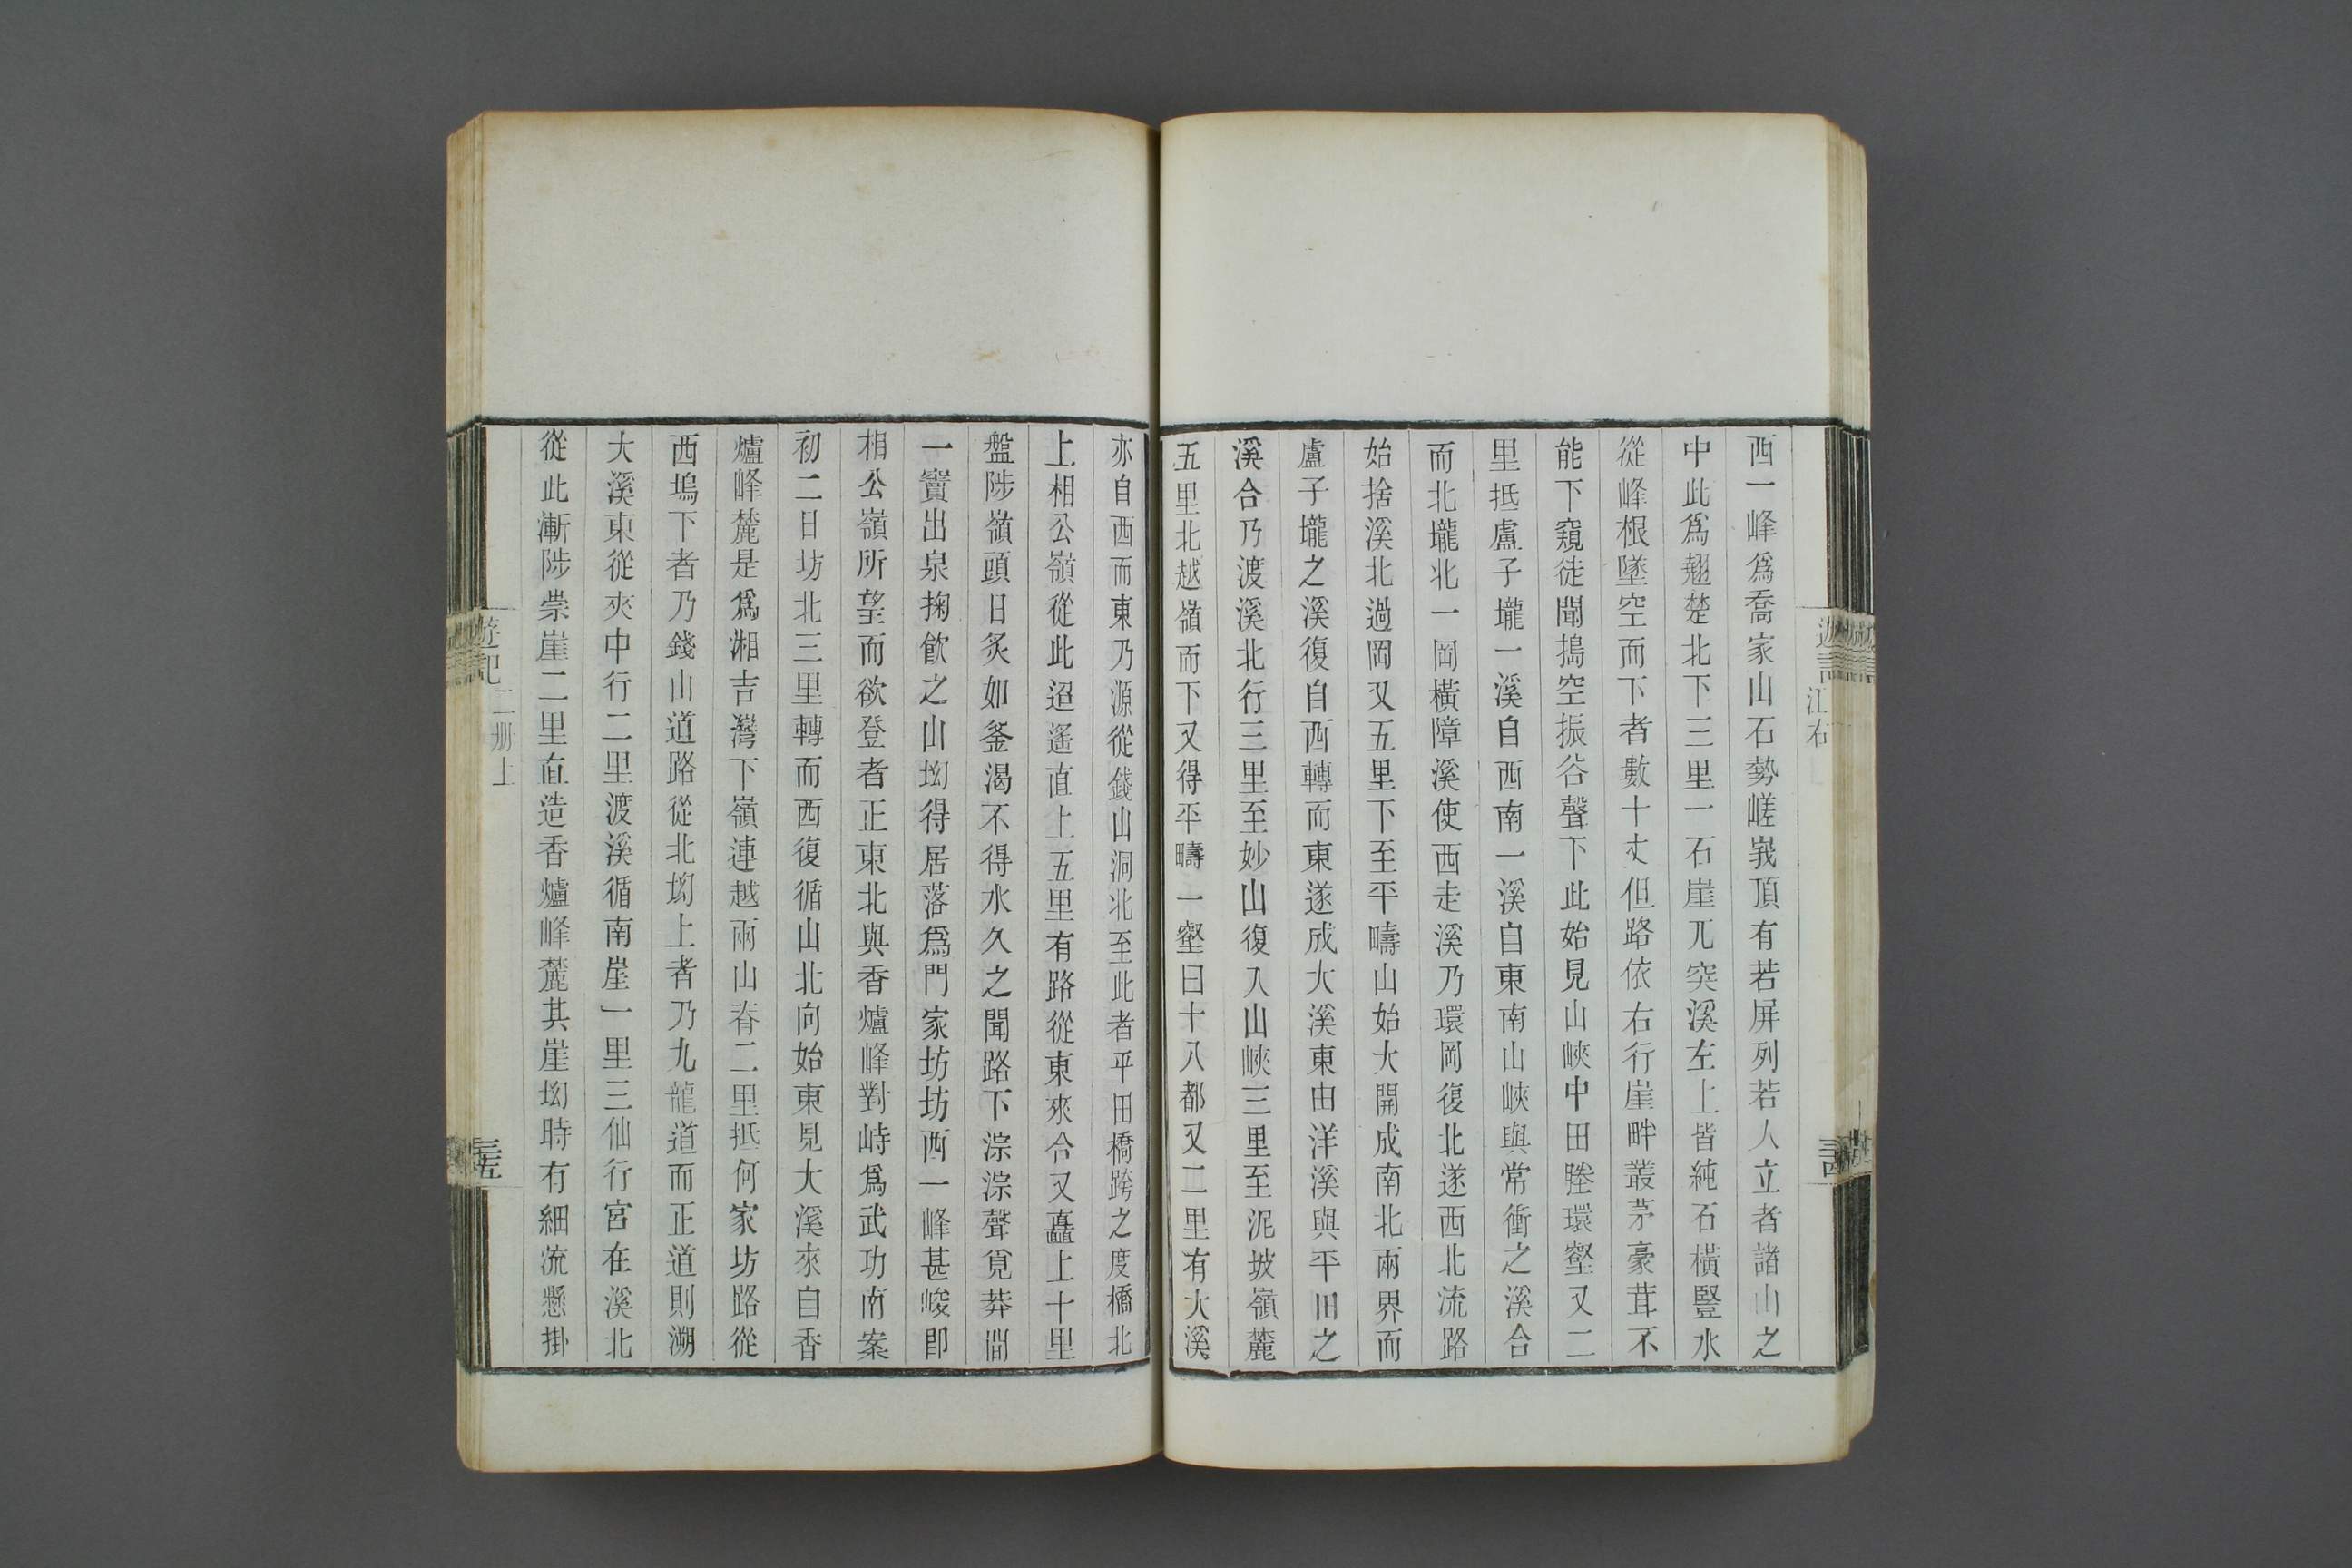 西一峰爲喬家山石勢嵯峩頂有若屏列若人立者諸山之
中此爲翹楚北下三里一石崖兀突溪左上皆純石橫豎水
從峰根墜空而下者數十丈但路依右行崖畔叢茅豪茸不
能下窺徒聞搗空振谷聲下此始見山峽中田塍環壑又二
里抵盧子壠一溪自西南一溪自東南山峽與常衝之溪合
而北壠北一岡橫障溪使西走溪乃環岡復北遂西北流路
始捨溪北過岡又五里下至平疇山始大開成南北兩界而
盧子壠之溪復自西轉而東遂成大溪東由洋溪與平田之
溪合乃渡溪北行三里至妙山復入山峽三里至泥坡嶺麓
五里北越嶺而下又得平疇一壑曰十八都又二里有大溪
亦自西而東乃源從錢山洞北至此者平田橋跨之度橋北
上相公嶺從此迢遥直上五里有路從東來合又矗上十里
盤陟嶺頭日炙如釜渴不得水久之聞路下淙淙聲覓莽間
一竇出泉掬飲之山坳得居落爲門家坊坊西一峰甚峻卽
相公嶺所望而欲登者正東北與香爐峰對峙爲武功南案
初二日坊北三里轉而西復循山北向始東見大溪來自香
爐峰麓是爲湘吉灣下嶺連越兩山脊二里抵何家坊路從
西塢下者乃錢山道路從北坳上者乃九龍道而正道則溯
大溪東從夾中行二里渡溪循南崖一里三仙行宮在溪北
從此漸陟崇崖二里直造香爐峰麓其崖坳時有細流懸掛
遊記 二册上
三五
江右